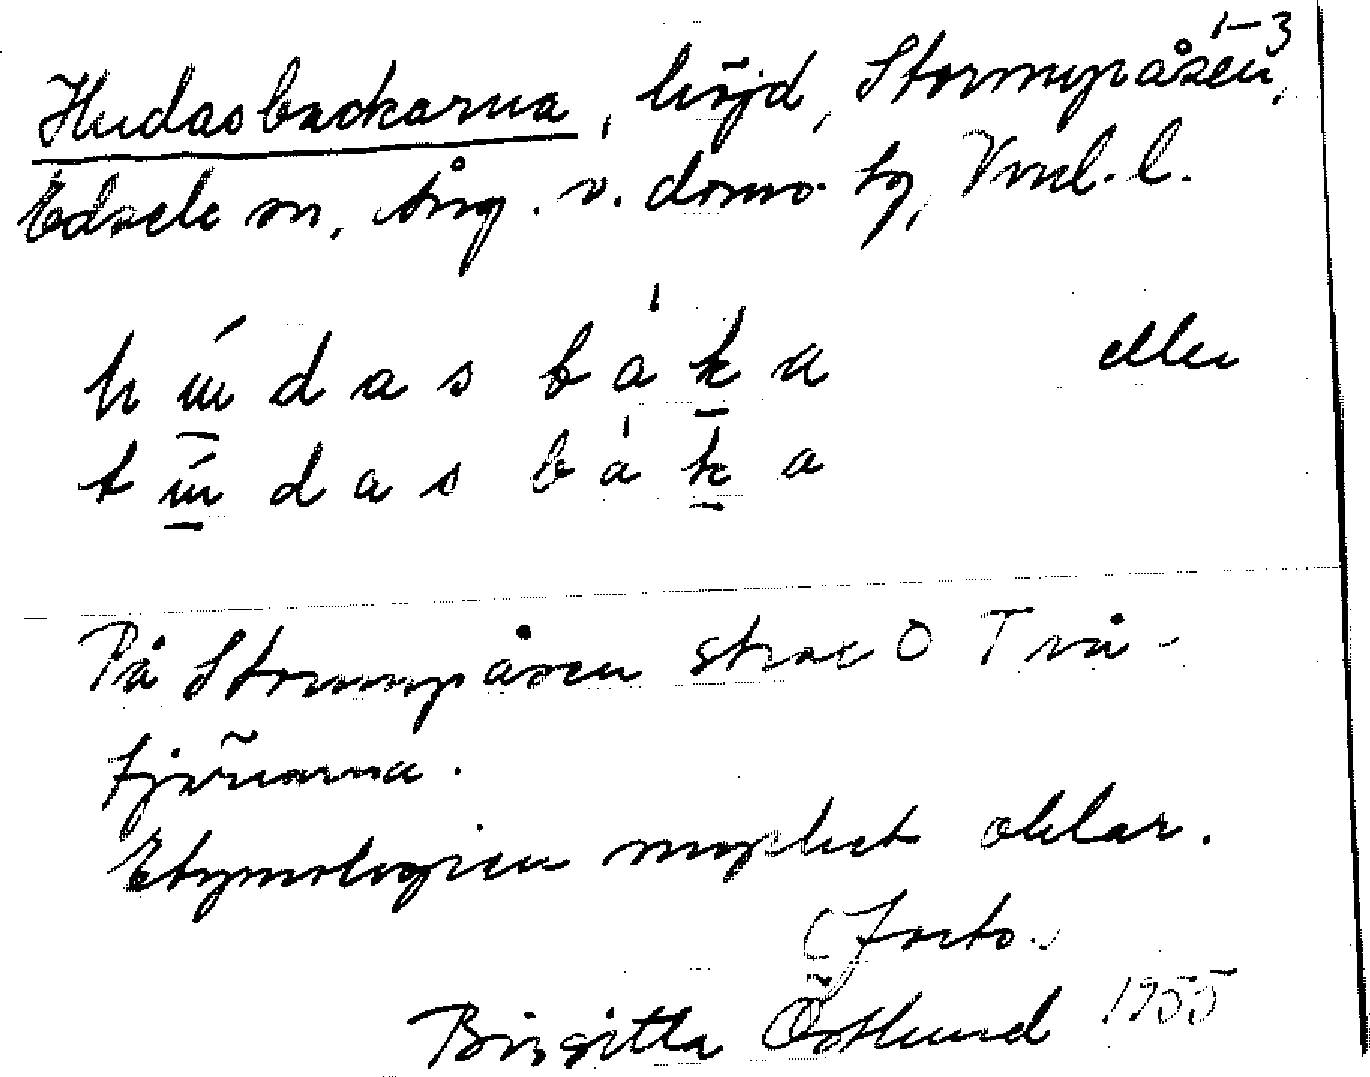 1-3
Hudasbackarna, höjd, Stormyråsen,
Edsele sn, Ång. v. doms. tg, Vnl. l.
h ú̲ d a s b a̍ k̲ a eller
t ú̲ d a s b a̍ k̲ a
På Stormyråsen strax O Två-
tjärnarna.
Etymologien mycket oklar.
(Forts.)
Birgitta Östlund 1955